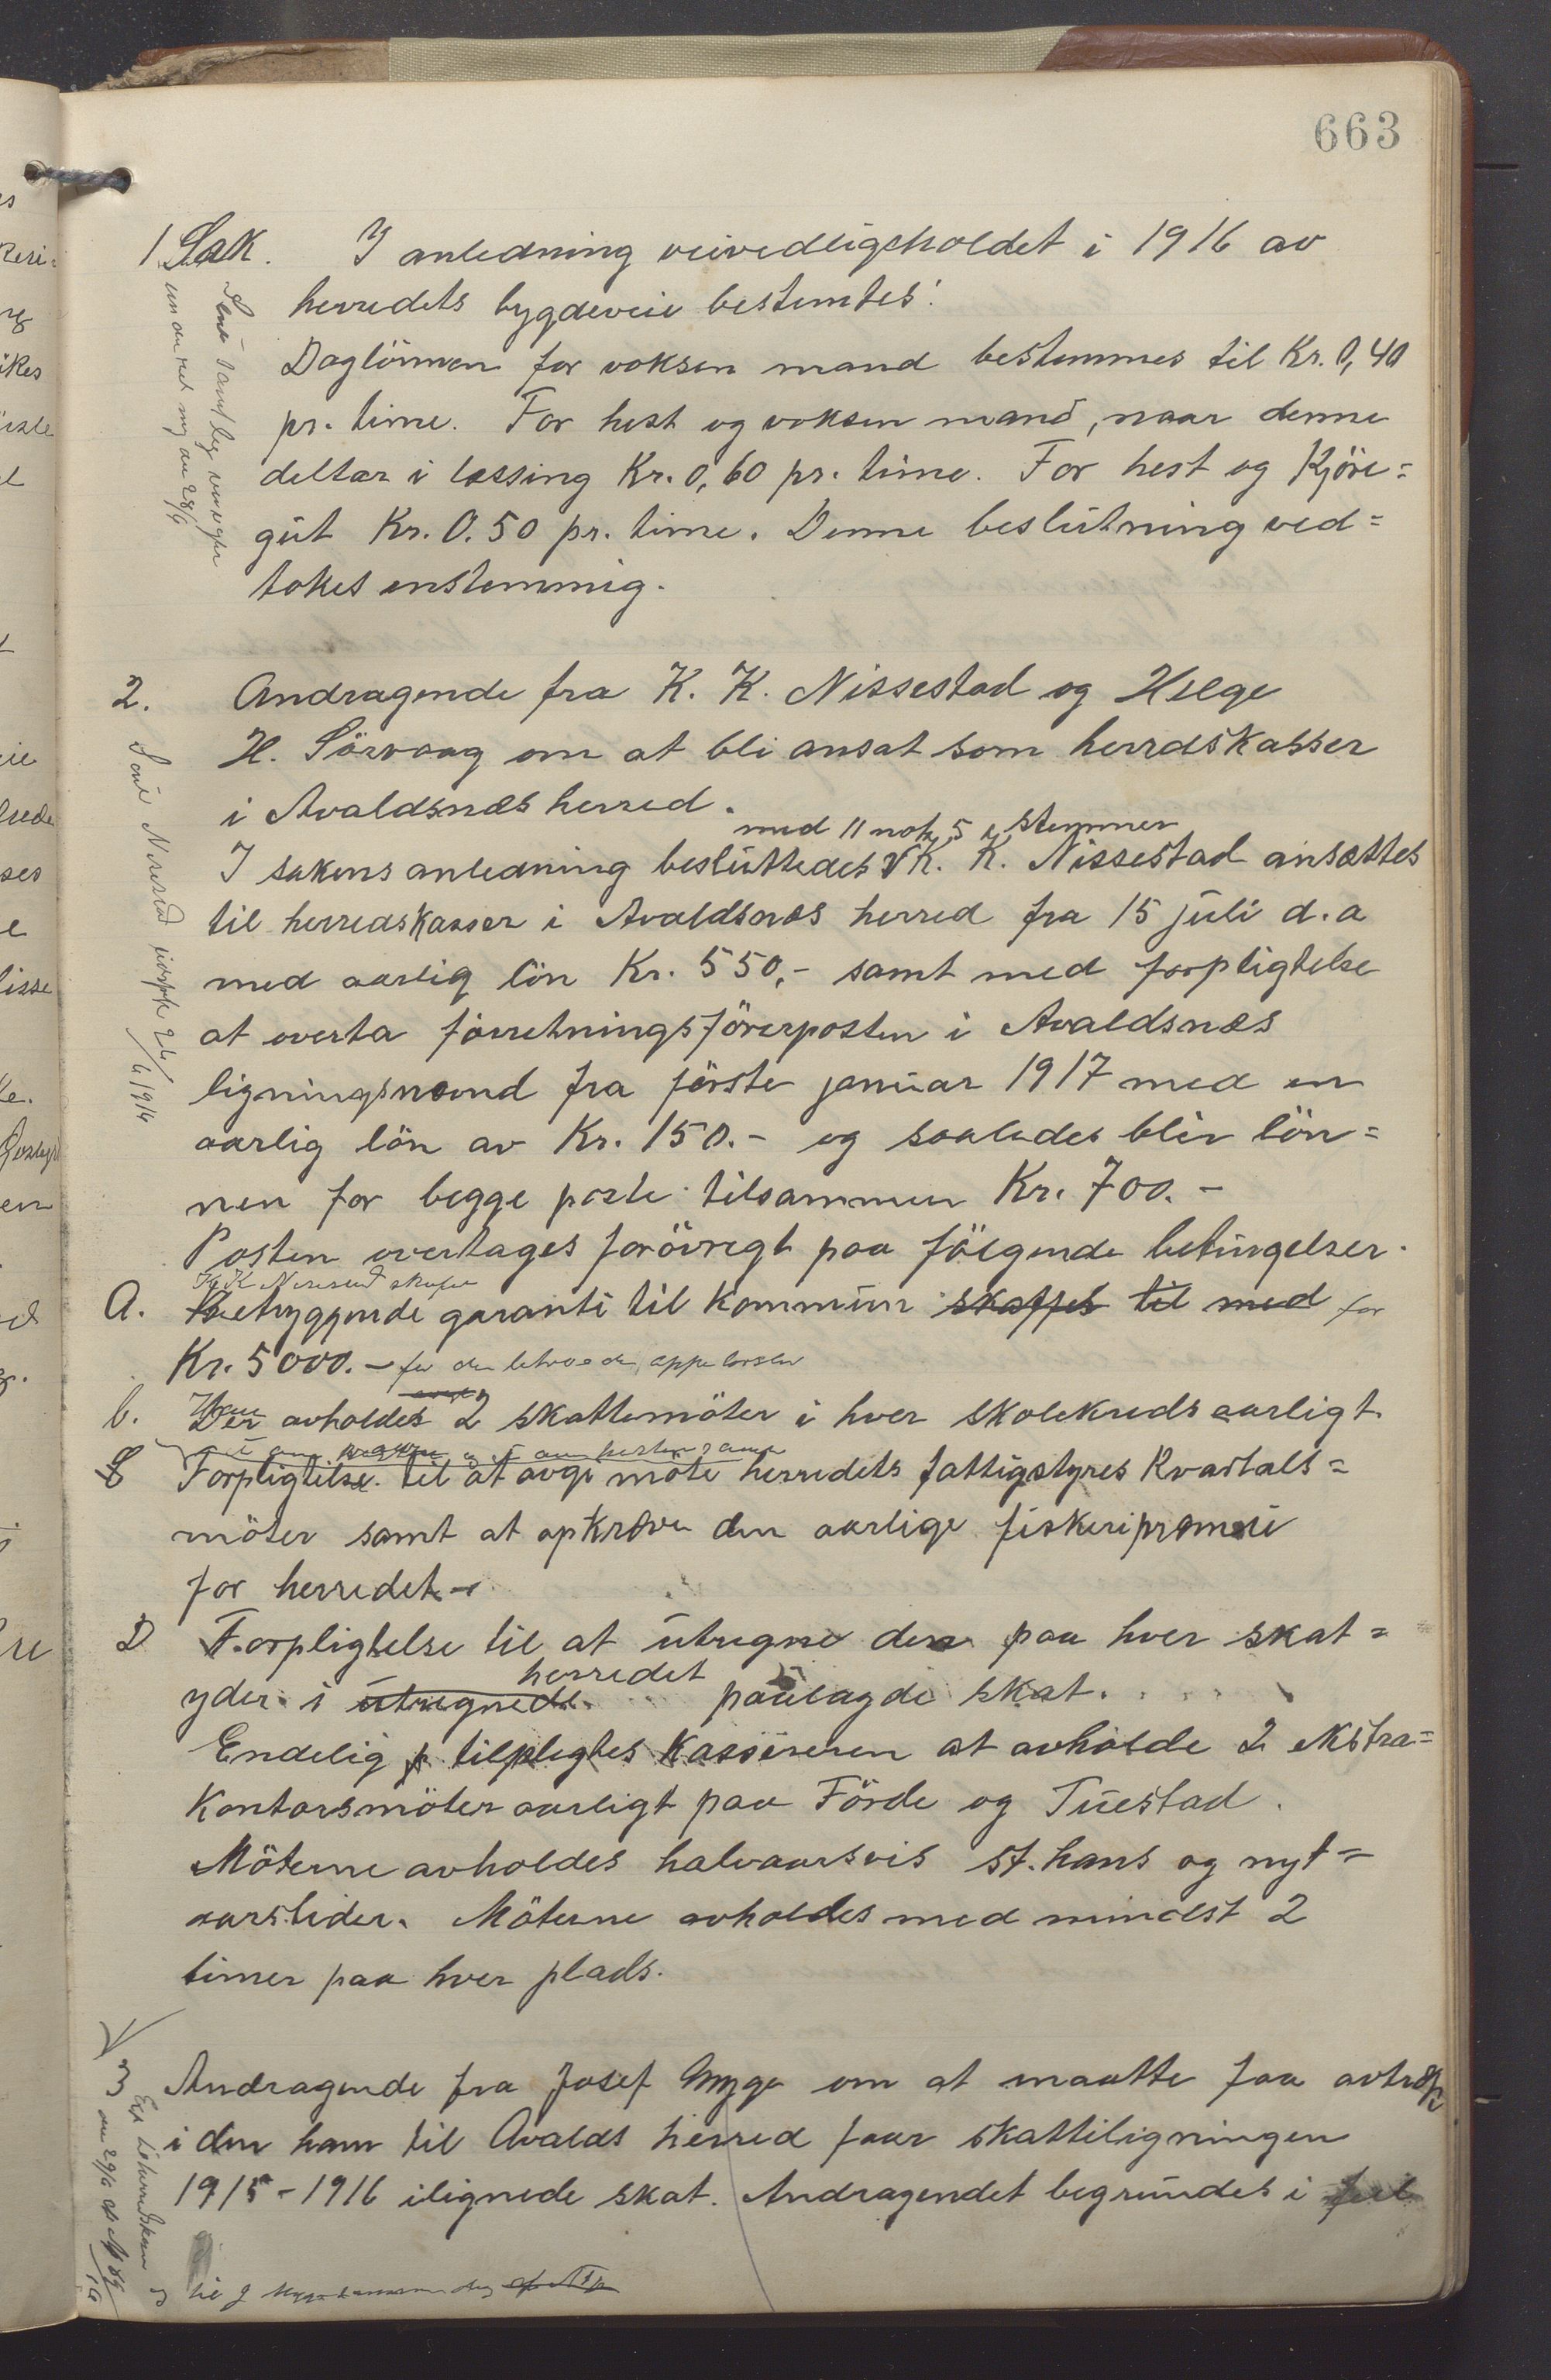 663
1 Sak. I anledning veivedligeholdet i 1916 av
herredets bygdeveie bestemtes:
Daglönnen for voksen mand bestemmes til Kr. 0,40
pr. time. For hest og voksen mand, naar denne
deltar i læssing Kr. 0,60 pr. time. For hest og Kjöre=
gut Kr. 0.50 pr. time. Denne beslutning ved=
tokes enstemmig.
2. Andragende fra K. K. Nissestad og Helge
H. Sörvaag om at bli ansat som herredskasser
i Avaldsnæs herred.
med 11 mot 5 stemmer
I sakens anledning besluttedes K. K. Nissestad ansættes
til herredskasser i Avaldsnæs herred fra 15 juli d.a
med aarlig lön Kr. 550,- samt med forpligtelse
at overta forretningsförerposten i Avaldsnæs
ligningsnævnd fra förste januar 1917 med en
aarlig lön av Kr. 150.- og saaledes blir lön=
nen for begge poste tilsammen Kr. 700.-
Posten overtages forövrigt paa fölgende betingelser.
A. Betryggende garanti til Kommunen skaffes til med for
Kr. 5000.- for den
b. Der avholdes 2 skattemöter i hver skolekreds aarligt.
Forpligtelse til at avgi möte herredets fattigstyres Kvartals=
möter samt at opkræve den aarlige fiskeripræmie
for herredet.
D Forpligtelse til at utregne den paa hver skat=
herredet
yder i utregnede paalagde skat.
Endelig tilpligtes Kassereren at avholde 2 ekstra=
Kontorsmöter aarligt paa Förde og Tuestad.
Möterne avholdes halvaarsvis st. hans og nyt=
aarstider. Möterne avholdes med mindst 2
timer paa hver plads.
3 Andragende fra Josef Mygge om at maatte faa avtræk
i den ham til Avalds herred faar skatteligningen
1915-1916 ilignede skat. Andragendet begrundes i feil